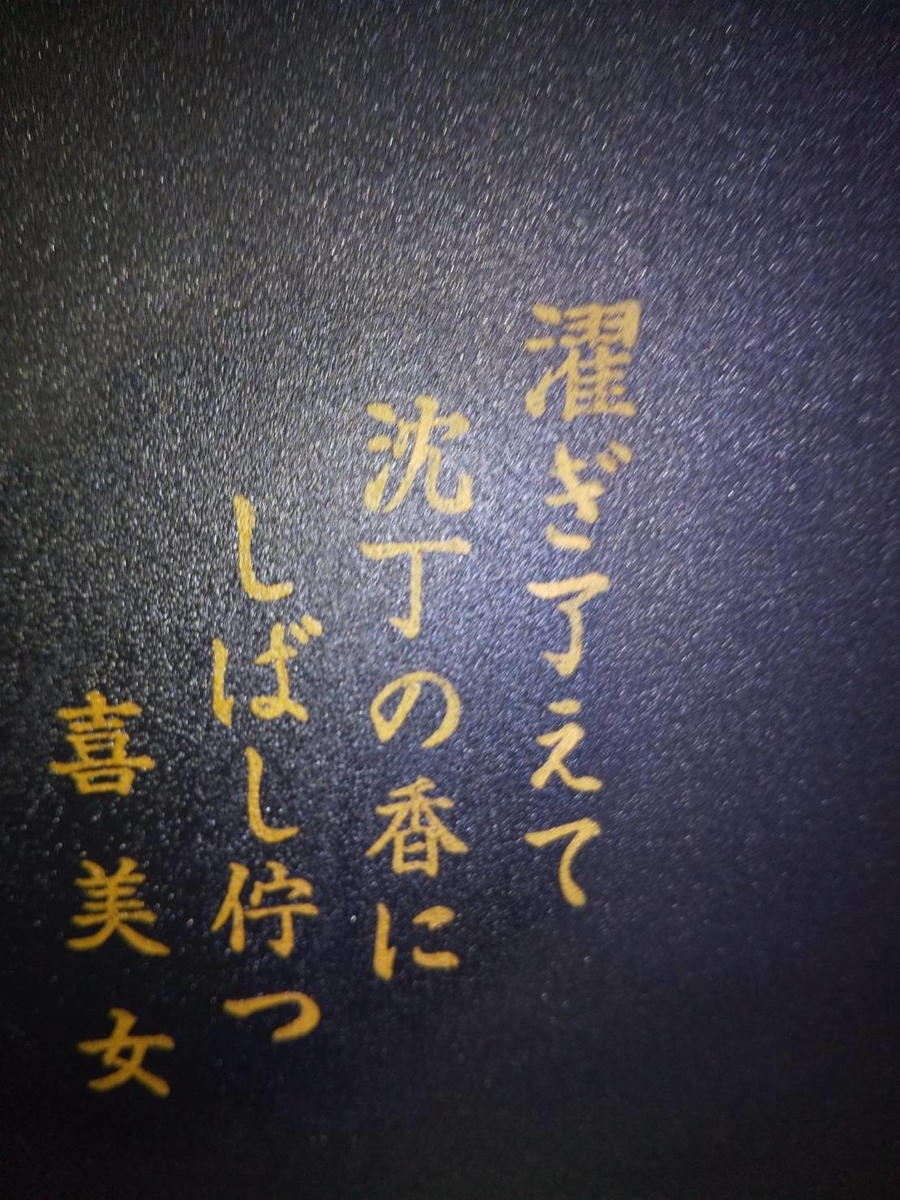 濯ぎ了えて
沈丁の香に
しばし佇つ
喜美女